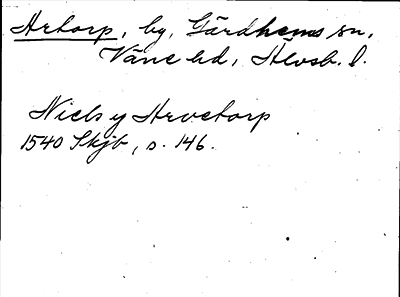 Artorp, by, Gärdhems sn,
Väne hd, Älvsb. l.
Niels y Arvetorp
1540 Skjb, s. 146.